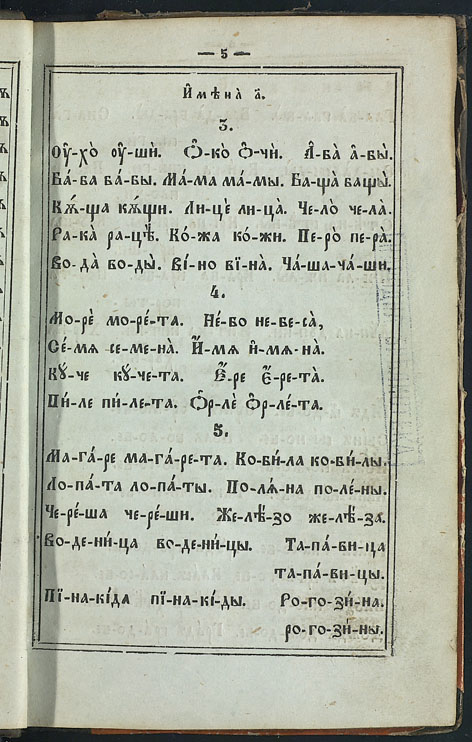 — 5 —
И҆́мѣна а҃.
3.
Оу҆́-хо оу҆́-ши. Ѻ҆́-ко ѻ҆́-чи. Л҆́-ба а҆́-вы̀.
Ба́-ба ба́-бы. Ма́-ма ма́-мы. Ба-ща̀ ба-щы̀.
Кѫ́-ща кѫ́щи. Ли-цѐ ли-ца̀. Че-ло̀ че-ла̀.
Ра-ка̀ ра-цѣ̀. Ко́-жа ко́-жи. Пе-ро̀ пе-ра̀.
Во-да̀ во-ды̀. Ві́-но вї-на̀. Ча́-ша-ча́-ши.
4.
Мо-рѐ мо-ре́-та. Не́-бо не-бе-са̀,
Се́-мѧ се-ме-на̀. И҆́-мѧ и҆-мѧ-на̀.
Кꙋ́-че кꙋ́-че-та. Е҆́-ре Е҆́-ре-та̀.
Пи́-ле пи́-ле-та. Ѻ҆р-лѐ ѻ҆р-ле́-та.
5.
Ма-га́-ре ма-га́-ре-та. Ко-би́-ла ко-би́-лы.
Ло-па́-та ло-па́-ты. По-лѧ́-на по-ле́-ны.
Че-ре́-ша че-ре́-ши. Же-лѣ́-зо же-лѣ́-за.
Во-де-ни́-ца во-де-ни́-цы. Та-па́-ви-ца
та-па́-ви-цы.
Пї-на-кі́да пї-на-кі́-ды. Ро-го-зи́-на.
ро-го-зи́-ны.